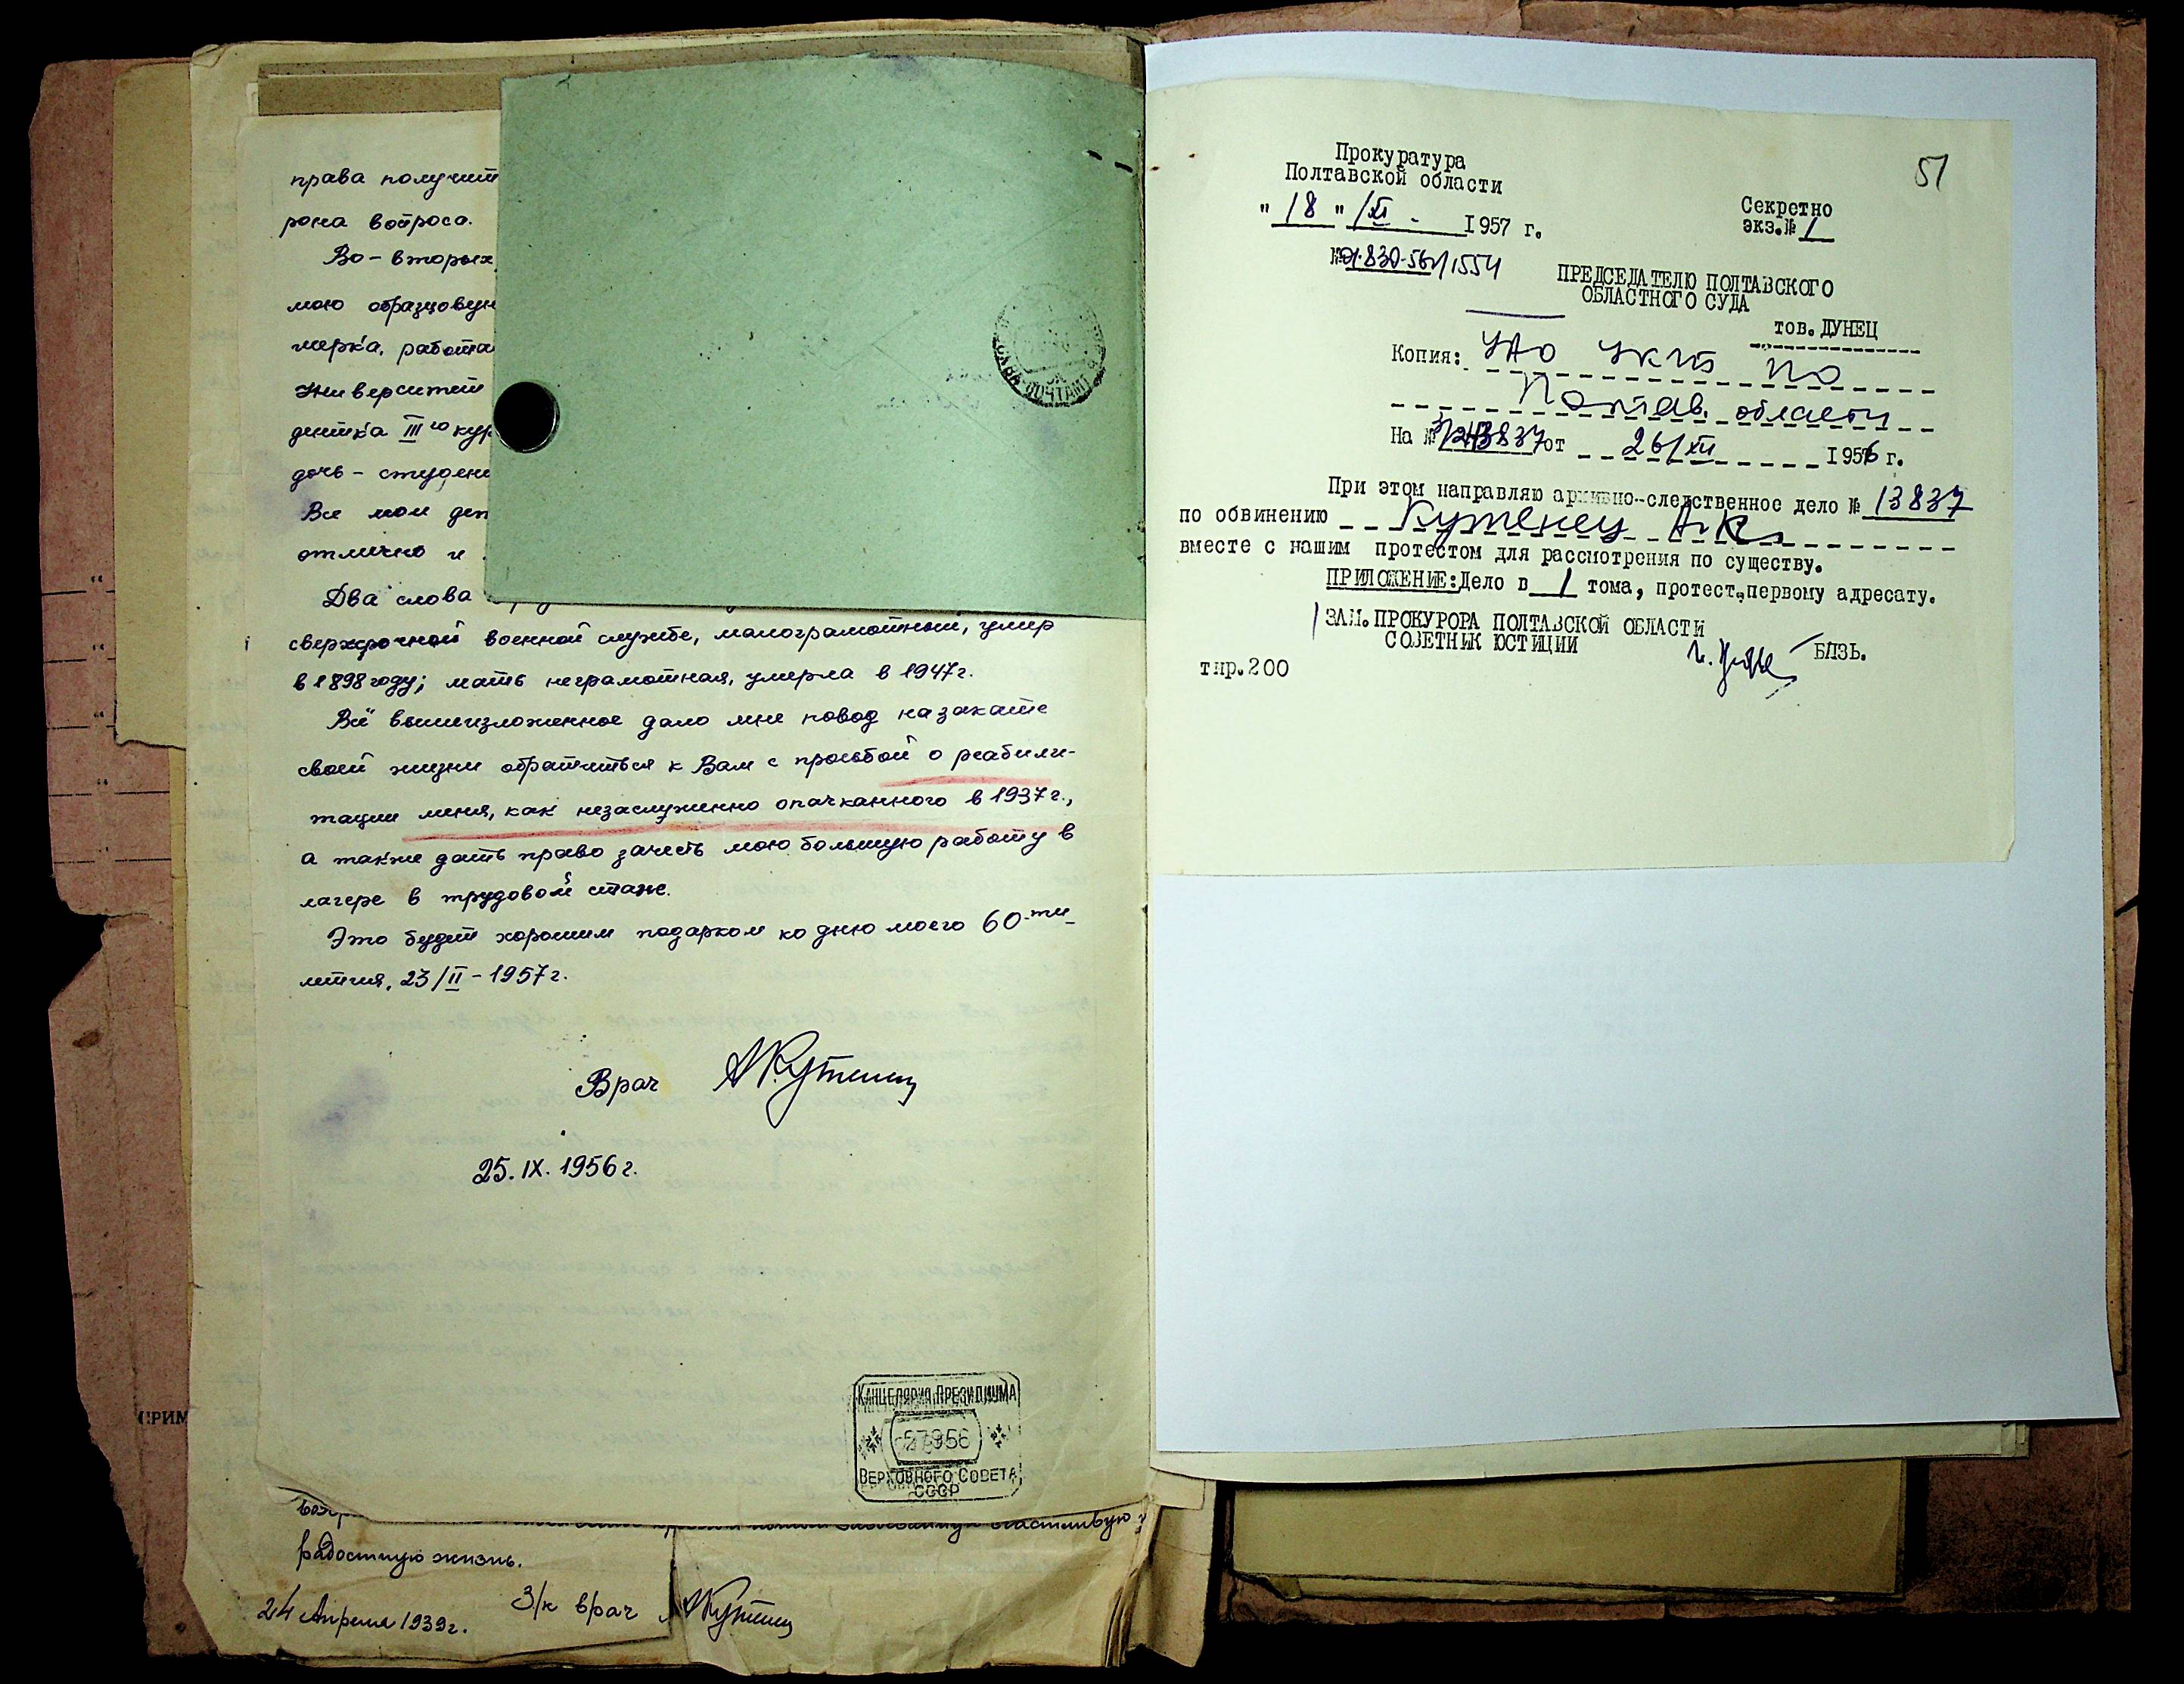 права получит
рона вопроса.
Во-вторых,
мою образцовую
мерка, работа
Университет
дентка III го кур
дочь - студен
Все мои дет
отлично и
Два слова
сверхсрочной военной службе, малограмотный, умер
в 1898 году; мать неграмотная, умерла в 1947 г.
Всё вышеизложенное дало мне повод на закате
своей жизни обратиться к Вам с просьбой о реабили-
тации меня, как незаслуженно опачканного в 1937 г.,
а также дать право зачесть мою большую работу в
лагере в трудовой стаж.
Это будет хорошим подарком ко дню моего 60-ти-
летия, 23/II - 1957 г.
Врач АКутенец
25. IX. 1956 г.
КАНЦЕЛЯРИЯ ПРЕЗИДИУМА
ВЕРХОВНОГО СОВЕТА
СССР
счастливую
радостную жизнь.
24 Апреля 1939 г. З/к врач АКутенец
ПРИМ
ПОЧТАМТ
51
Прокуратура
Полтавской области
"18" /XI - 1957 г.
Секретно
экз.№ 1
830-56/1554
ПРЕДСЕДАТЕЛЮ ПОЛТАВСКОГО
ОБЛАСТНОГО СУДА
тов. ДУНЕЦ
Копия: УАО УКГБ по
Полтав. области
На № 13837 от 26/XII 1956 г.
При этом направляю архивно-следственное дело № 13837
по обвинению Кутенец А.К.
вместе с нашим протестом для рассмотрения по существу.
ПРИЛОЖЕНИЕ: Дело в 1 тома, протест, первому адресату.
ЗАМ. ПРОКУРОРА ПОЛТАВСКОЙ ОБЛАСТИ
СОВЕТНИК ЮСТИЦИИ БЛЗЬ.
тир.200